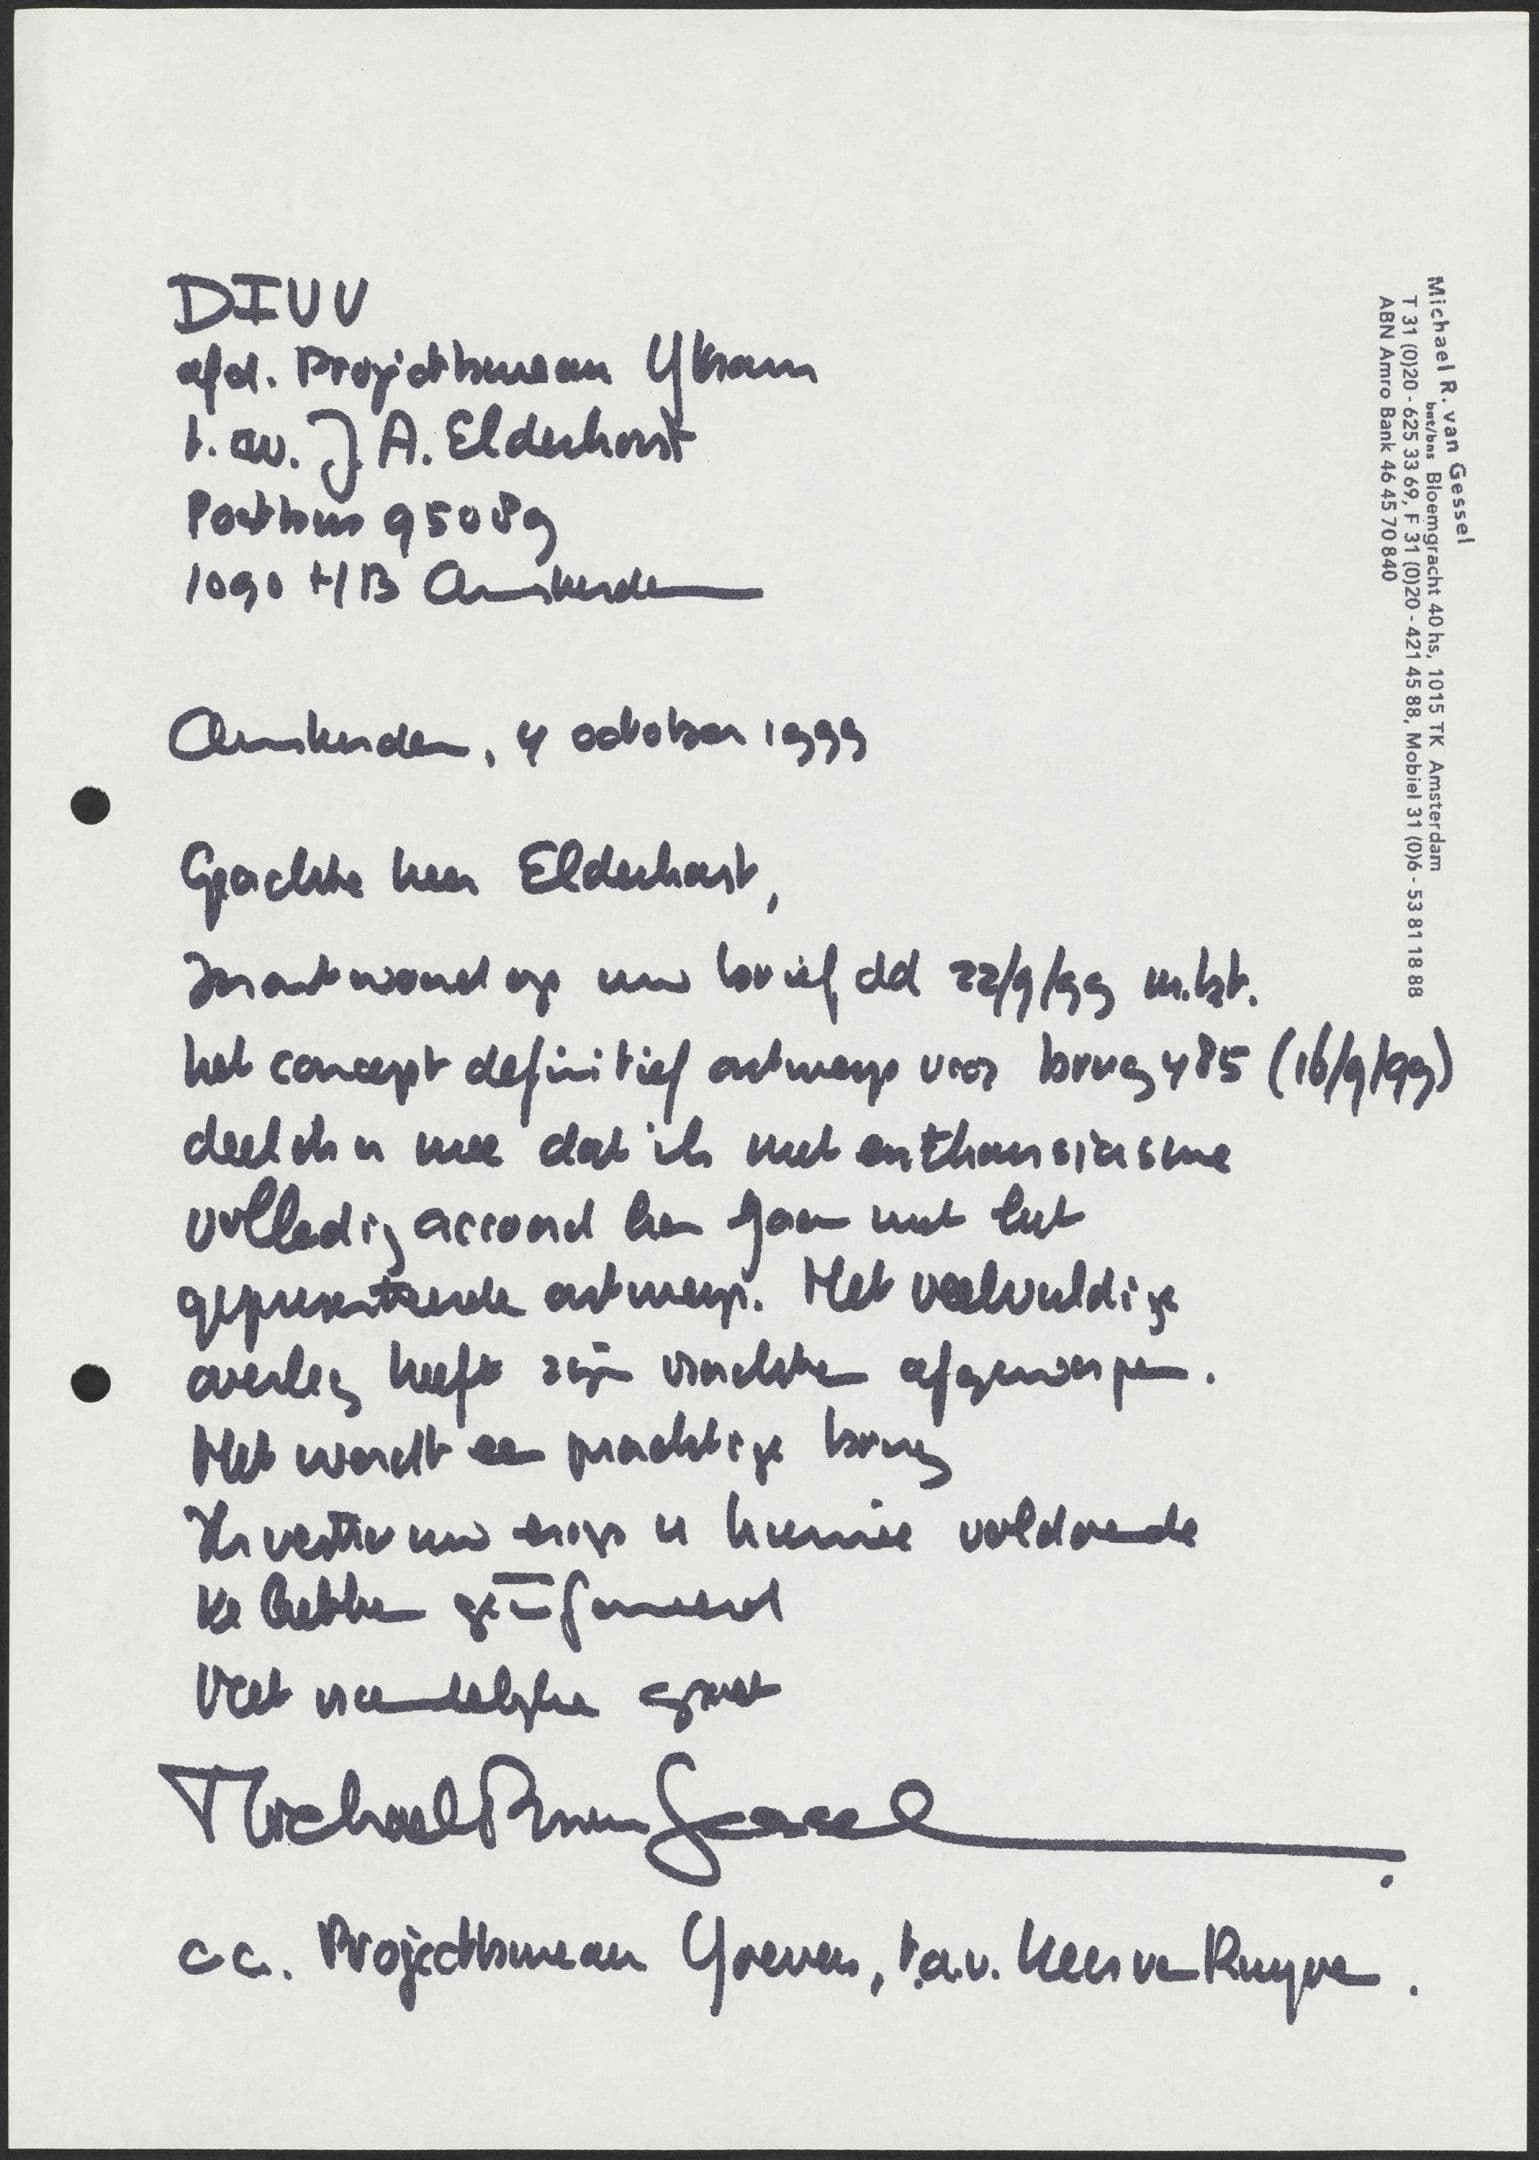 Michael R. van Gessel
bnt/bns Bloemgracht 40 hs, 1015 TK Amsterdam
T 31 (0)20 - 625 33 69, F 31 (0)20 - 421 45 88, Mobiel 31 (0)6 - 53 81 18 88
ABN Amro Bank 46 45 70 840
DIVV
afd. Projectbureau IJtram
t.av. J.A. Elderhorst
Postbus 95089
1090 HB Amsterdam
Amsterdam, 4 october 1999
Geachte heer Elderhorst,
In antwoord op uw brief dd 22/9/99 m.bt.
het concept definitief ontwerp voor brug 485 (16/9/99)
deel ik u mee dat ik met enthousiasme
volledig accoord kan gaan met het
gepresenteerde ontwerp. Het veelvuldige
overleg heeft zijn vruchten afgeworpen.
Het wordt een prachtige brug
Ik vertrouw erop u hiermee voldoende
te hebben geïnformeerd
Met vriendelijke groet
Michael R van Gessel
c.c. Projectbureau IJoevers, t.a.v. Kees van Ruyven.